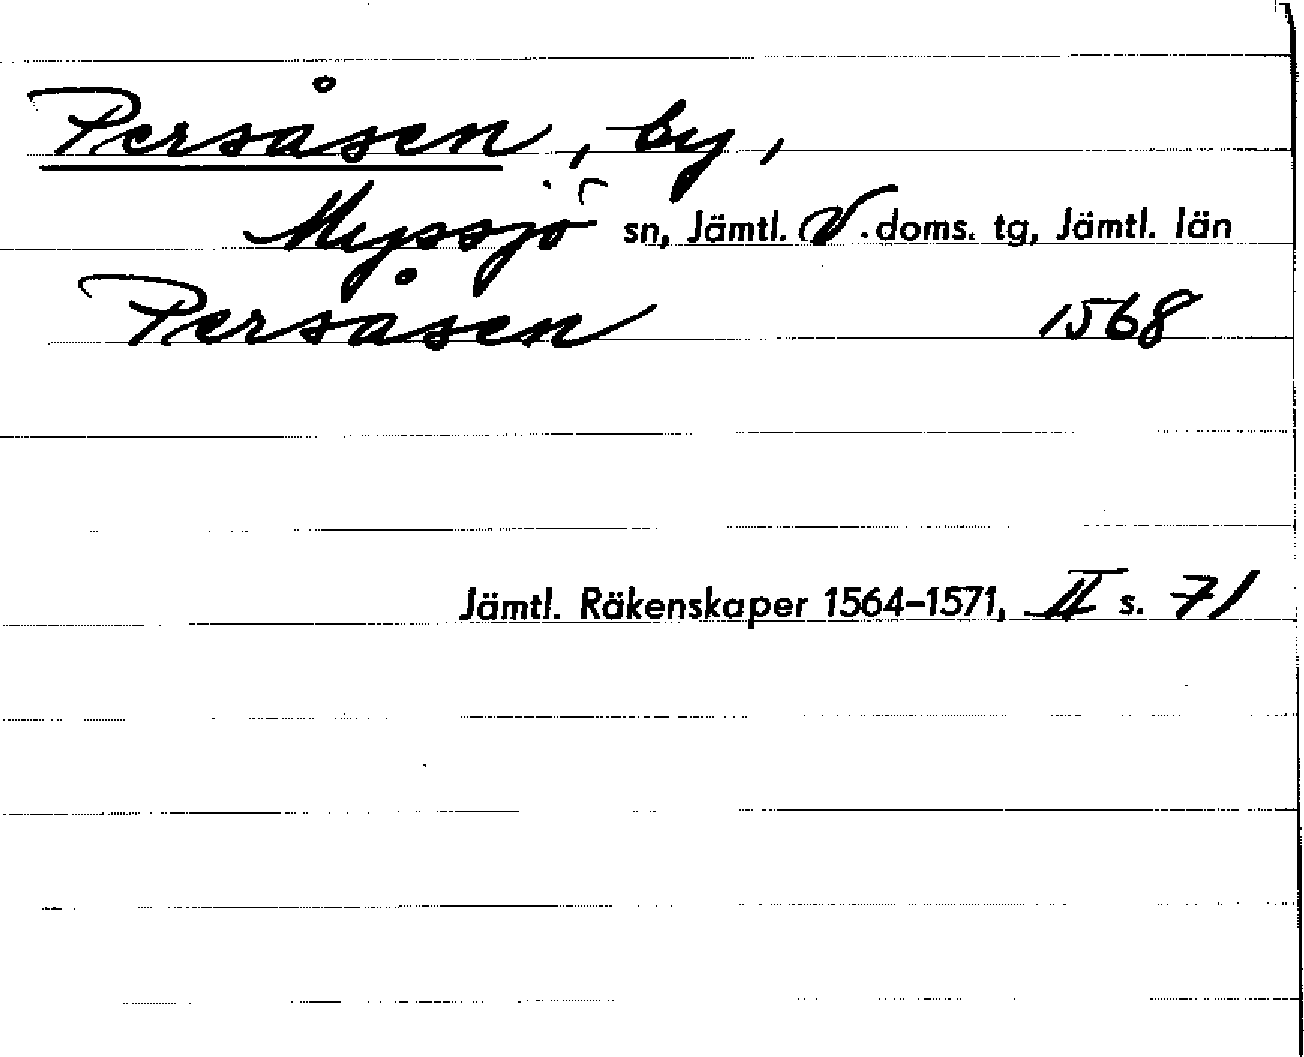 Persåsen, by,
Myssjö sn, Jämtl. V. doms. tg, Jämtl. län
Persåsen 1568
Jämtl. Räkenskaper 1564-1571, II s. 71